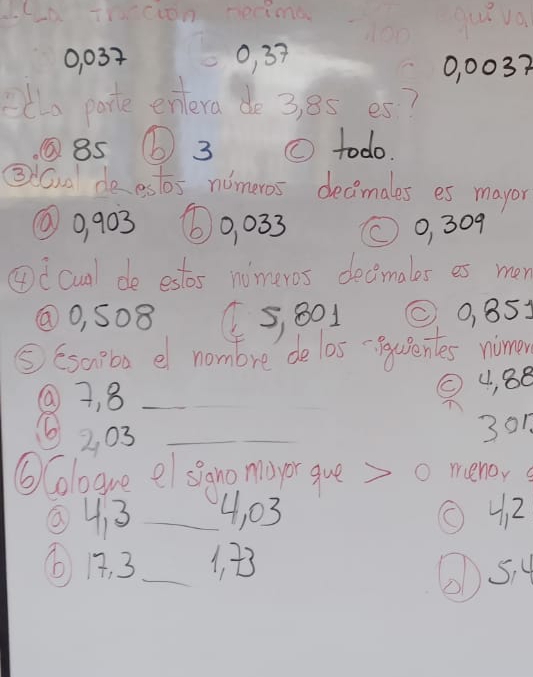 La fracción decimal
0,037 0,37 0,0037
La parte entera de 3,85 es?
ⓐ 85 ⓑ 3 ⓒ todo.
③ ¿Cual de estos números decimales es mayor
ⓐ 0,903 ⓑ 0,033 ⓒ 0,309
④ ¿Cual de estos números decimales es men
ⓐ 0,508 5,801 ⓒ 0,851
⑤ Escriba el nombre de los siguientes númer
ⓐ 7,8 ____ ⓒ 4,88
ⓑ 2,03 ____
⑥ Cologue el signo mayor que > o menor
ⓐ 4,3 ____ 4,03 ⓒ 4,2
ⓑ 17,3 ____ 1,73 ⓓ 5,4